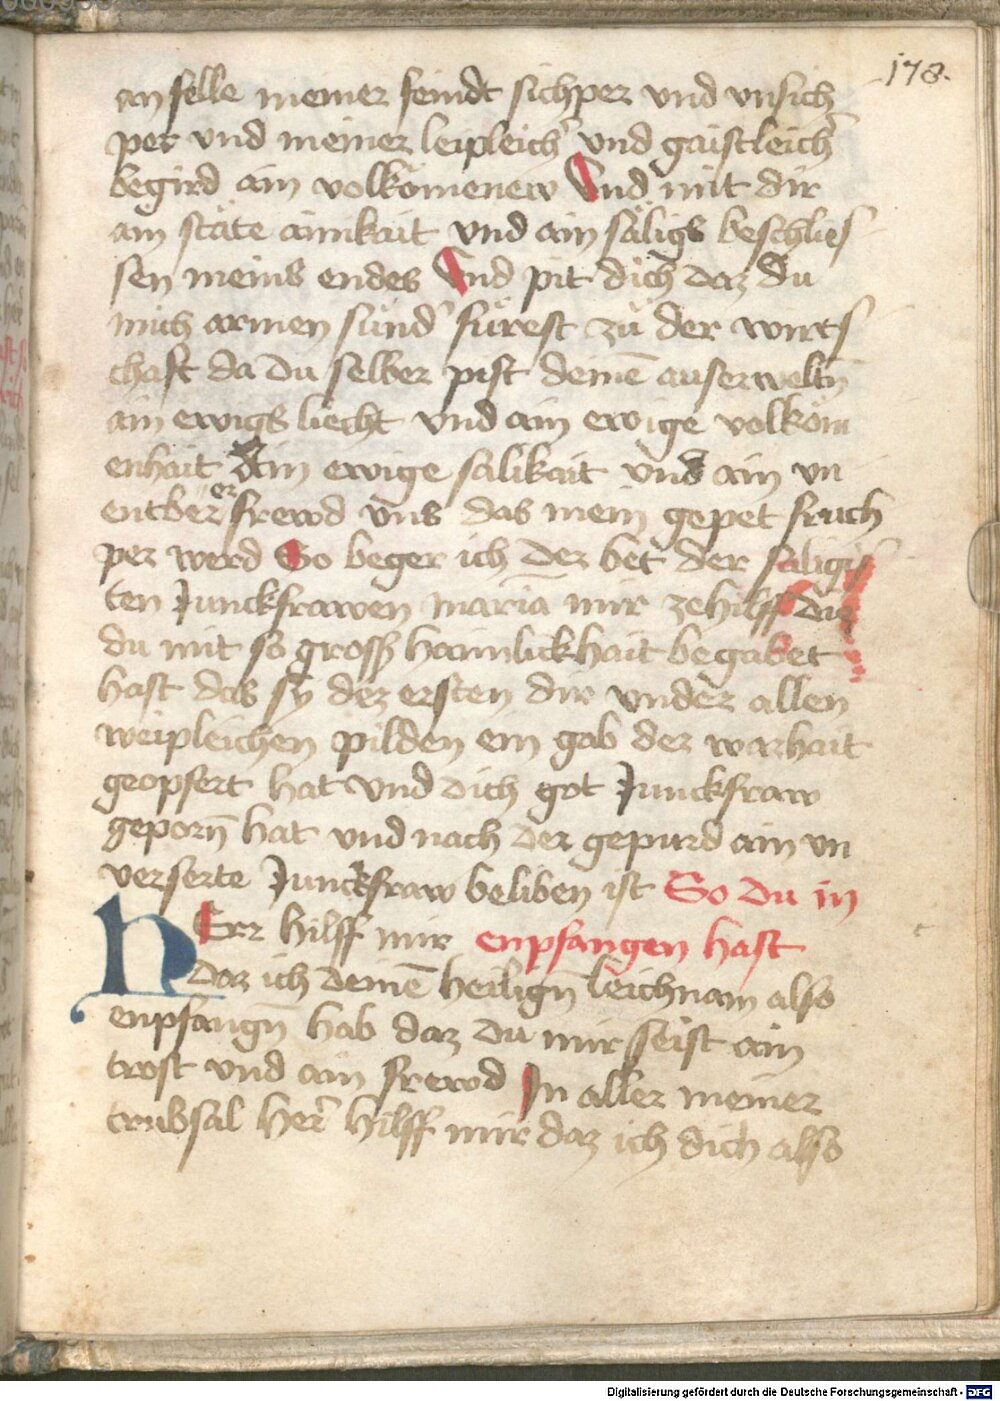 178.
an selle meiner feindt sichper vnd vnsich
per vnd meiner leipleich̉ vnd gaistleich̉
begird ain volkömenew Vnd mit dir
ain stäte ainikait vnd ain säligs beschlies
sen meins endes Vnd pit dich daz du
mich armen sünd̉ fürest zü der wirts
chaft da du selber pist deinē auserweltn̄
ain ewigs liecht vnd ain ewige volköm
enhait Ain ewige sälikait vnd ain vn
entberer frewd vns das mein gepet fruch
per werd So beger ich der bet der säligis
ten Junckfrawen maria mir zehilff die
du mit so gross haimlickhait begabet
hast das sy dez ersten dir vnder allen
weipleichen pilden ein gab der warhait
geopfert hat vnd dich got Junckfraw
geporn̄ hat vnd nach der gepurd ain vn
verserte Junckfraw beliben ist So du in
hErr hilff mir enpfangen hast
daz ich deinē heilign̄ leichnam also
enpfangn̄ hab daz du mir seist ain
trost vnd ain frewd In aller meiner
trubsal her̉ hilff mir daz ich dich also
Digitalisierung gefördert durch die Deutsche Forschungsgemeinschaft - DFG